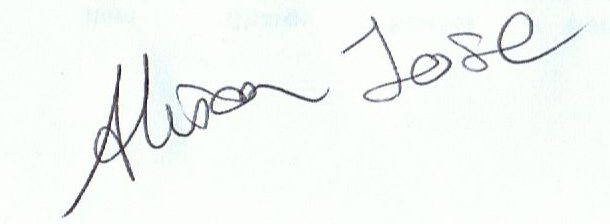 Alison Jose